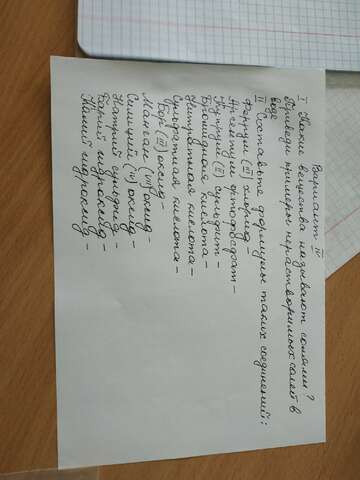 Вариант IV
I Какие вещества называют солями?
Приведи примеры нерастворимых солей в
воде
II Составьте формулы таких соединений:
Феррум (III) хлорид -
Аргентум ортофосфат -
Купрум (II) сульфит -
Бромидная кислота -
Нитратная кислота -
Сульфатная кислота -
Бор (III) оксид -
Манган (VII) оксид -
Силиций (IV) оксид -
Натрий сульфид -
Барий гидроксид -
Калий гидроксид -